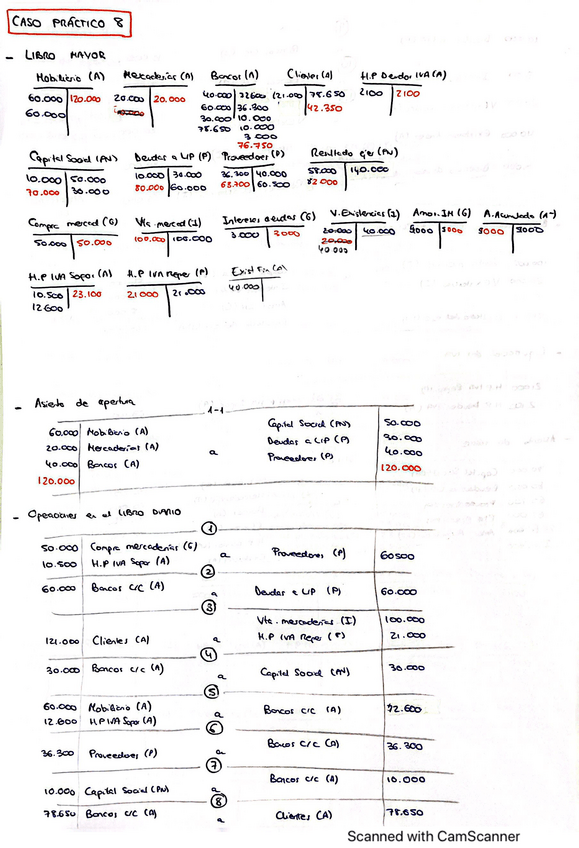 CASO PRÁCTICO 8
- LIBRO MAYOR
Mobiliario (A) Mercaderías (A) Bancos (A) Clientes (A) H.P Deudor IVA (A)
60.000 120.000 20.000 20.000 40.000 72600 121.000 78.650 2100 2100
60.000 60.000 36.300 42.350
30.000 10.000
78.650 10.000
3.000
76.750
Capital Social (PN) Deudas a L/P (P) Proveedores (P) Resultado ejer (PN)
10.000 50.000 10.000 30.000 36.300 40.000 58.000 140.000
70.000 30.000 80.000 60.000 63.700 60.500 82 000
Compra mercad (G) Vta. mercad (I) Intereses deudas (G) V. Existencias (I) Amor. IM (G) A. Acumulada (A-)
50.000 50.000 100.000 100.000 3.000 3000 20.000 40.000 5000 5000 5000 5000
20.000
40.000
H.P IVA Sopor (A) H.P IVA Reper (P) Exist Fin (A)
10.500 23.100 21.000 21.000 40.000
12600
- Asiento de apertura
1-1
60.000 Mobiliario (A) Capital Social (PN) 50.000
20.000 Mercaderías (A) a Deudas a L/P (P) 30.000
40.000 Bancos (A) Proveedores (P) 40.000
120.000 120.000
- Operaciones en el LIBRO DIARIO
1
50.000 Compra mercaderías (G) a Proveedores (P) 60500
10.500 H.P IVA Sopor (A)
2
60.000 Bancos c/c (A) a Deudas a L/P (P) 60.000
3
Vta. mercaderías (I) 100.000
121.000 Clientes (A) a H.P IVA Reper (P) 21.000
4
30.000 Bancos c/c (A) a Capital Social (PN) 30.000
5
60.000 Mobiliario (A) a Bancos c/c (A) 72.600
12.600 H.P IVA Sopor (A)
6
36.300 Proveedores (P) a Bancos c/c (A) 36.300
7
Bancos c/c (A) 10.000
10.000 Capital Social (PN) a
8
78.650 Bancos c/c (A) a Clientes (A) 78.650
Scanned with CamScanner